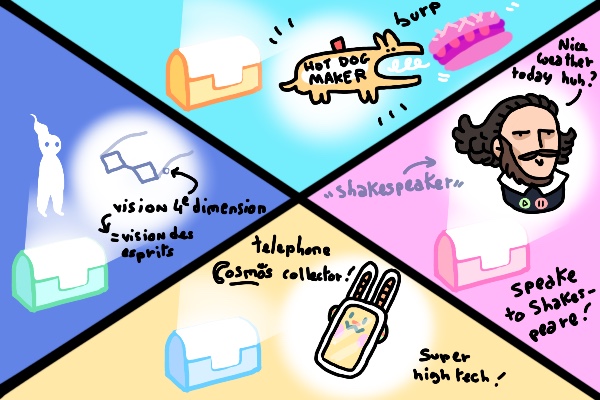 burp
HOT DOG
MAKER
Nice
weather
today huh?
"shakespeaker"
speake
to Shakes-
peare!
vision 4e dimension
= vision des
esprits
telephone
Cosmo's collector!
Super
high tech!